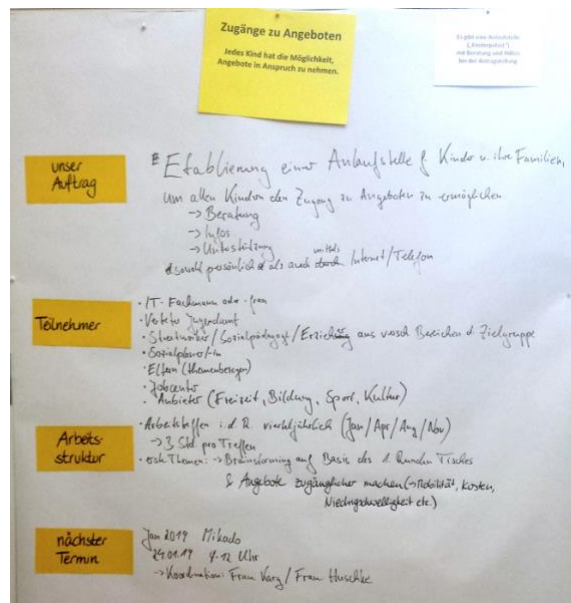 Zugänge zu Angeboten
Jedes Kind hat die Möglichkeit,
Angebote in Anspruch zu nehmen.
Es gibt eine Anlaufstelle
mit Beratung und Hilfen
bei der Antragstellung
unser
Auftrag
Etablierung einer Anlaufstelle f. Kinder u. ihre Familien,
um allen Kindern den Zugang zu Angeboten zu ermöglichen
-> Beratung
-> Infos
-> Unterstützung
mittels
sowohl persönlich als auch durch Internet/Telefon
Teilnehmer
· IT-Fachmann oder -frau
· Vertreter Jugendamt
· Streetworker/Sozialpädagoge/Erzieher aus versch. Bereichen d. Zielgruppe
· Sozialplaner/-in
· Eltern (themenbezogen)
· Jobcenter
· Anbieter (Freizeit, Bildung, Sport, Kultur)
Arbeits-
struktur
· Arbeitstreffen i.d.R. vierteljährlich (Jan/Apr/Aug/Nov)
-> 3 Std. pro Treffen
· erste Themen: -> Brainstorming auf Basis des 1. Runden Tisches
& Angebote zugänglicher machen (->Mobilität, Kosten,
Niedrigschwelligkeit etc.)
nächster
Termin
Jan 2019 Mikado
24.01.19 9-12 Uhr
-> Koordination: Frau Varg / Frau Huschke